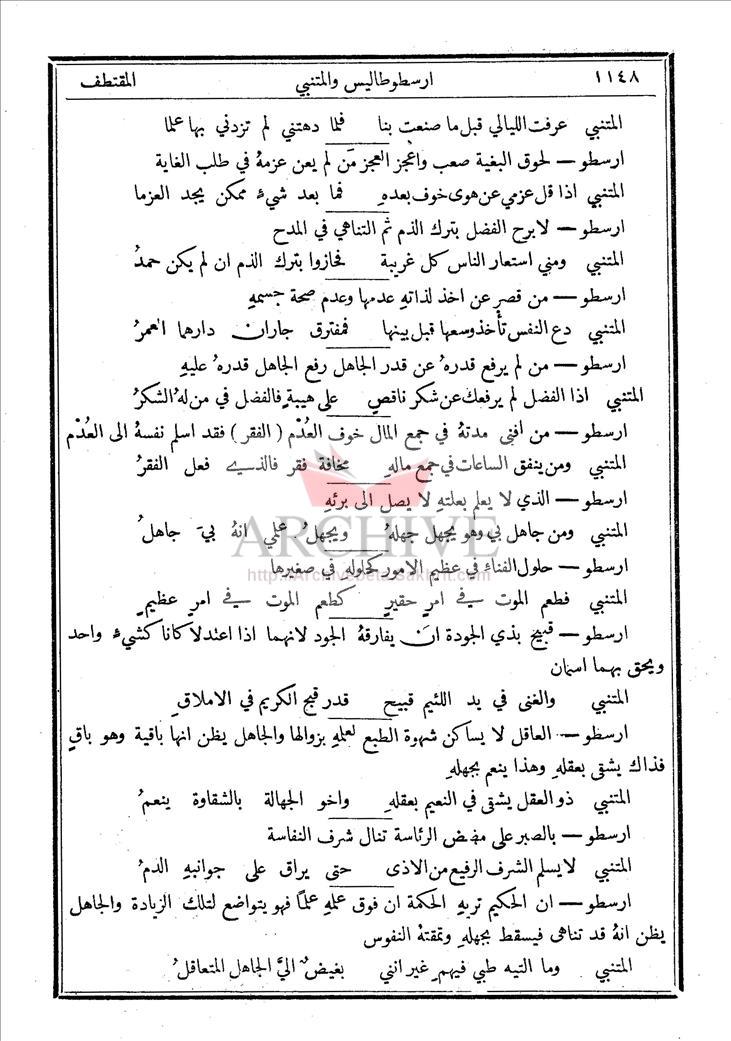 ١١٤٨ ارسطوطاليس والمتنبي المقتطف
المتنبي عرفت الليالي قبل ما صنعت بنا فلما دهتني لم تزدني بها علما
ارسطو — لحوق البغية صعب واعجز العجز من لم يعن عزمهُ في طلب الغاية
المتنبي اذا قل عزمي عن هوى خوف بعدهِ فما بعد شيءٍ ممكن يجد العزما
ارسطو — لابرح الفضل بترك الذم ثم التناهي في المدح
المتنبي ومني استعار الناس كل غريبة فجازوا بترك الذم ان لم يكن حمدُ
ارسطو — من قصر عن اخذ لذاتهِ عدمها وعدم صحة جسمهِ
المتنبي دع النفس تأخذ وسعها قبل بينها فمفترق جاران دارهما العمرُ
ارسطو — من لم يرفع قدرهُ عن قدر الجاهل رفع الجاهل قدرهُ عليهِ
المتنبي اذا الفضل لم يرفعك عن شكر ناقصٍ على هيبةٍ فالفضل في من لهُ الشكرُ
ارسطو — من افنى مدتهُ في جمع المال خوف العُدْم ( الفقر ) فقد اسلم نفسهُ الى العُدْم
المتنبي ومن ينفق الساعات في جمع مالهِ مخافة فقر فالذي فعل الفقرُ
ارسطو — الذي لا يعلم بعلتهِ لا يصل الى برئهِ
المتنبي ومن جاهل بي وهو يجهل جهلهُ ويجهلُ علمي انهُ بيَ جاهلُ
ارسطو — حلول الفناءِ في عظيم الامور كحلولهِ في صغيرها
المتنبي فطعم الموت في امرٍ حقيرٍ كطعم الموت في امرٍ عظيمٍ
ارسطو — قبيح بذي الجودة ان يفارقهُ الجود لانهما اذا اعتدلا كانا كشيءٍ واحد
ويحق بهما اسمان
المتنبي والغنى في يد اللئيم قبيح قدر قبح الكريم في الاملاقِ
ارسطو — العاقل لا يساكن شهوة الطبع لعلمهِ بزوالها والجاهل يظن انها باقية وهو باقٍ
فذاك يشقى بعقلهِ وهذا ينعم بجهلهِ
المتنبي ذو العقل يشقى في النعيم بعقلهِ واخو الجهالة بالشقاوة ينعمُ
ارسطو — بالصبر على مضض الرئاسة تنال شرف النفاسة
المتنبي لا يسلم الشرف الرفيع من الاذى حتى يراق على جوانبهِ الدمُ
ارسطو — ان الحكيم تريهِ الحكمة ان فوق علمهِ علمًا فهو يتواضع لتلك الزيادة والجاهل
يظن انهُ قد تناهى فيسقط بجهلهِ وتمقتهُ النفوس
المتنبي وما التيه طبي فيهمِ غير انني بغيضٌ اليَّ الجاهل المتعاقلُ
ARCHIVE
http://Archivebeta.Sakhrit.com